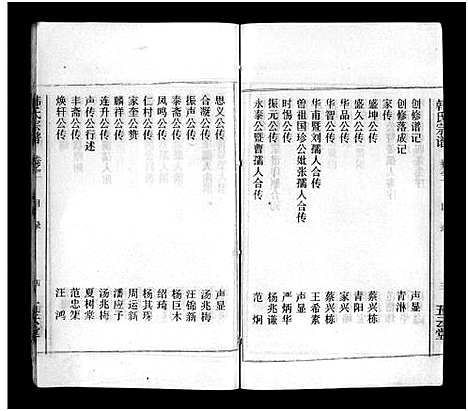 韩氏宗谱 卷之一 目录 三 五云堂
创修谱记 声显
创修落成记 青淋
家传
盛坤公传 蔡兴栋
盛久公传 青阳
华品公传 家兴
华智公传 蔡兴栋
华甫暨刘孺人合传 王希素
曾祖国珍公妣张孺人合传 声显
时惕公传 严炳华
振元公传 杨兆谦
永泰公暨曹孺人合传 范炯
思义公传 声显
合凝公传 汤兆梅
振声公传 汪锦新
泰斋公传 杨巨木
凤鸣公传 绍琦
仁村公传 杨其珠
家奎公赞 周运新
麟祥公传 潘应子
连升公传 汤兆梅
声传公行述 夏树棠
丰斋公传 范忠
焕轩公传 汪鸿
韩氏宗谱 目录